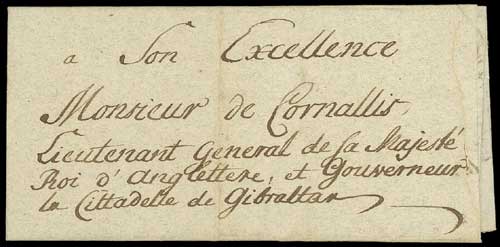 a Son Excellence
Monsieur de Cornallis,
Lieutenant General de sa Majesté
Roi d'Anglettere, et Gouverneur
la Cittadelle de Gibraltar